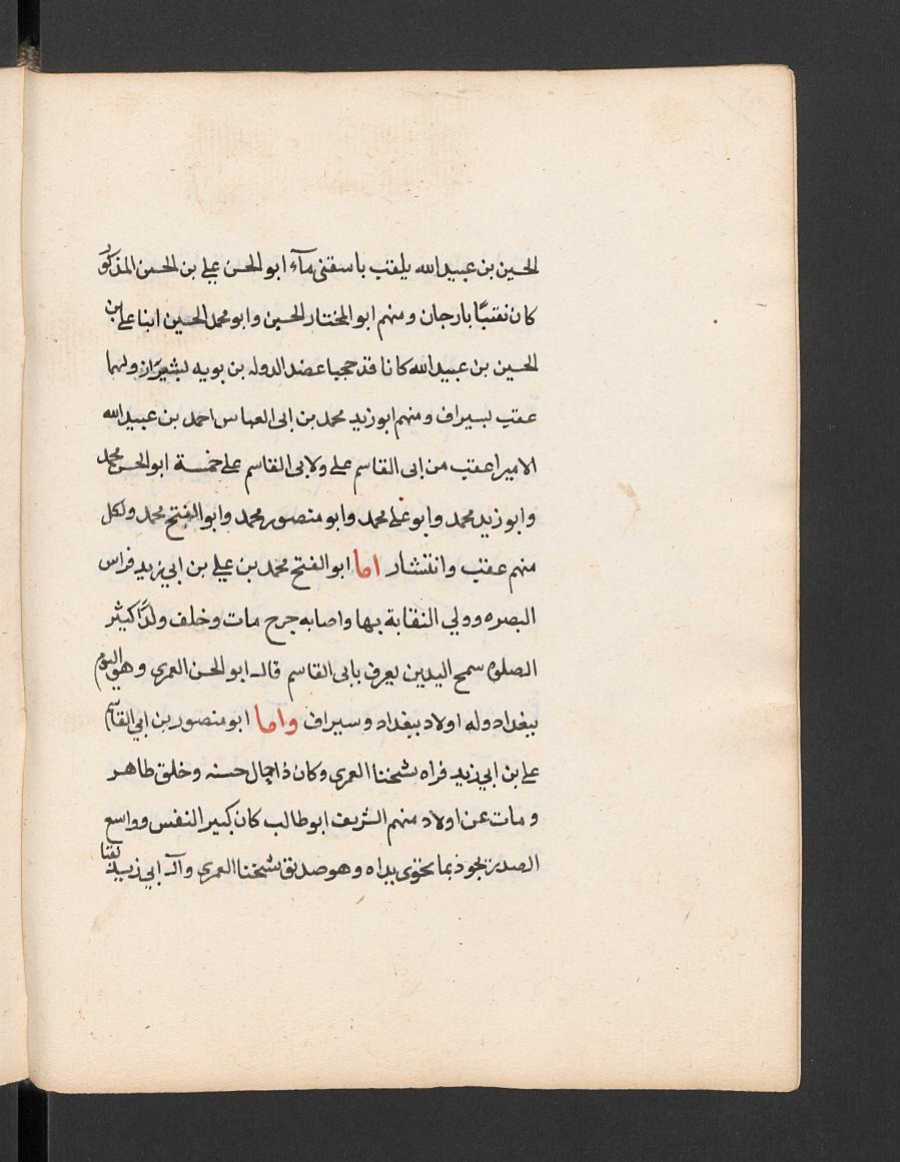 الحسين بن عبيدالله يلقب باسقنى مآء ابو الحسن علي بن الحسن المذكور
كان نقيبًا بارجان ومنهم ابو المختار الحسين وابو محمد الحسين ابنا علي بن
الحسين بن عبيدالله كانا قد حجبا عضد الدوله بن بويه بشيراز ولهما
عقب بسيراف ومنهم ابوزيد محمد بن ابى العباس احمد بن عبيدالله
الامير اعقب من ابى القاسم على ولابى القاسم على خمسة ابو الحسن محمد
وابوزيد محمد وابو على محمد وابو منصور محمد وابو الفتح محمد ولكل
منهم عقب وانتشار اما ابو الفتح محمد بن علي بن ابي زيد فراس
البصره وولي النقابة بها واصابه جرح مات وخلف ولدًا كثير
الصلوة سمح اليدين يعرف بابى القاسم قال ابو الحسن العمرى وهو اليوم
ببغداد وله اولاد ببغداد وسيراف واما ابو منصور بن ابي القاسم
على بن ابي زيد فراه شيخنا العمري وكان ذا حال حسنه وخلق طاهر
ومات عن اولاد منهم الشريف ابو طالب كان كبير النفس وواسع
الصدر يجود بما تحوى يداه وهو صديق شيخنا العمري وآل ابي زيد نقبا